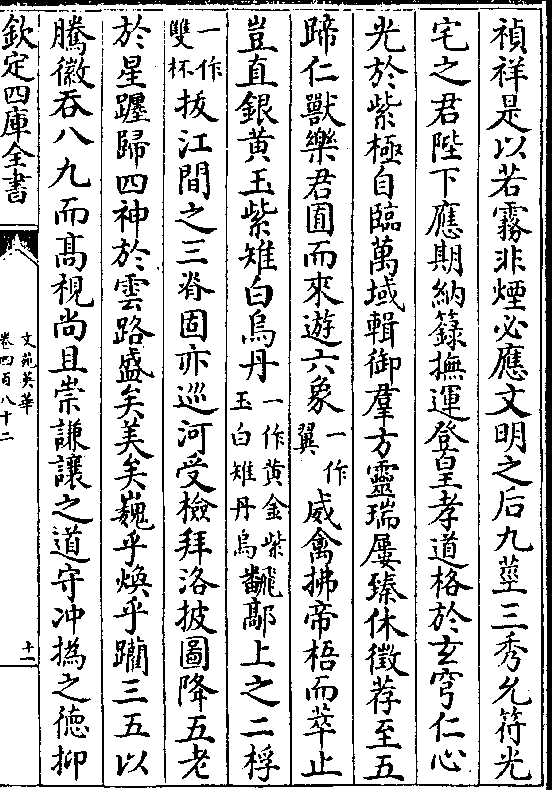 禎祥是以若霧非煙必應文明之后九莖三秀允符光
宅之君陛下應期納籙撫運登皇孝道格於玄穹仁心
光於紫極自臨萬域輯御羣方靈瑞屢臻休徵荐至五
蹄仁獸樂君囿而來遊六象一作翼威禽拂帝梧而萃止
豈直銀黄玉紫雉白烏丹一作黄金紫玉白雉丹烏翻鄗上之二桴
一作雙杯拔江間之三脊固亦巡河受檢拜洛披圖降五老
於星躔歸四神於雲路盛矣美矣巍乎煥乎躪三五以
騰徽吞八九而髙視尚且崇謙讓之道守冲撝之德抑
欽定四庫全書
文苑英華
卷四百八十二
十一